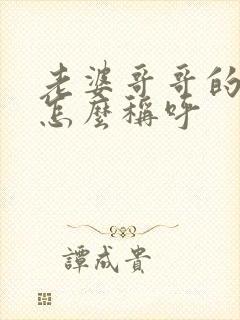 老婆哥哥的
怎麼稱呼
譚成貴